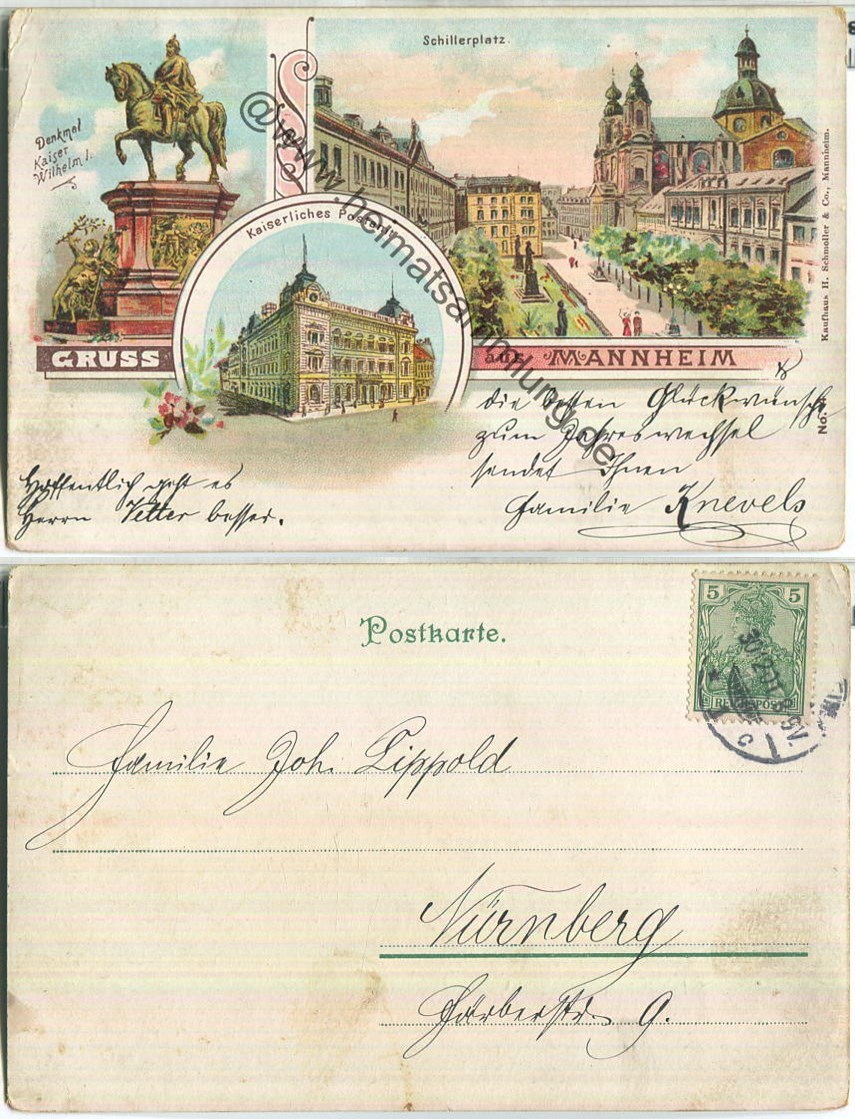 Schillerplatz.
Denkmal
Kaiser
Wilhelm I.
Kaiserliches Postamt
GRUSS aus MANNHEIM
Kaufhaus H. Schmoller & Co., Mannheim.
No.
@www.heimatsammlung.de
die besten Glückwünsche
zum Jahreswechsel
sendet Ihnen
Familie Knevels
Hoffentlich geht es
Herrn Vetter besser.
Postkarte.
5 5
REICHSPOST
30 12
Familie Joh. Lippold
Nürnberg
Färberstr. 9.